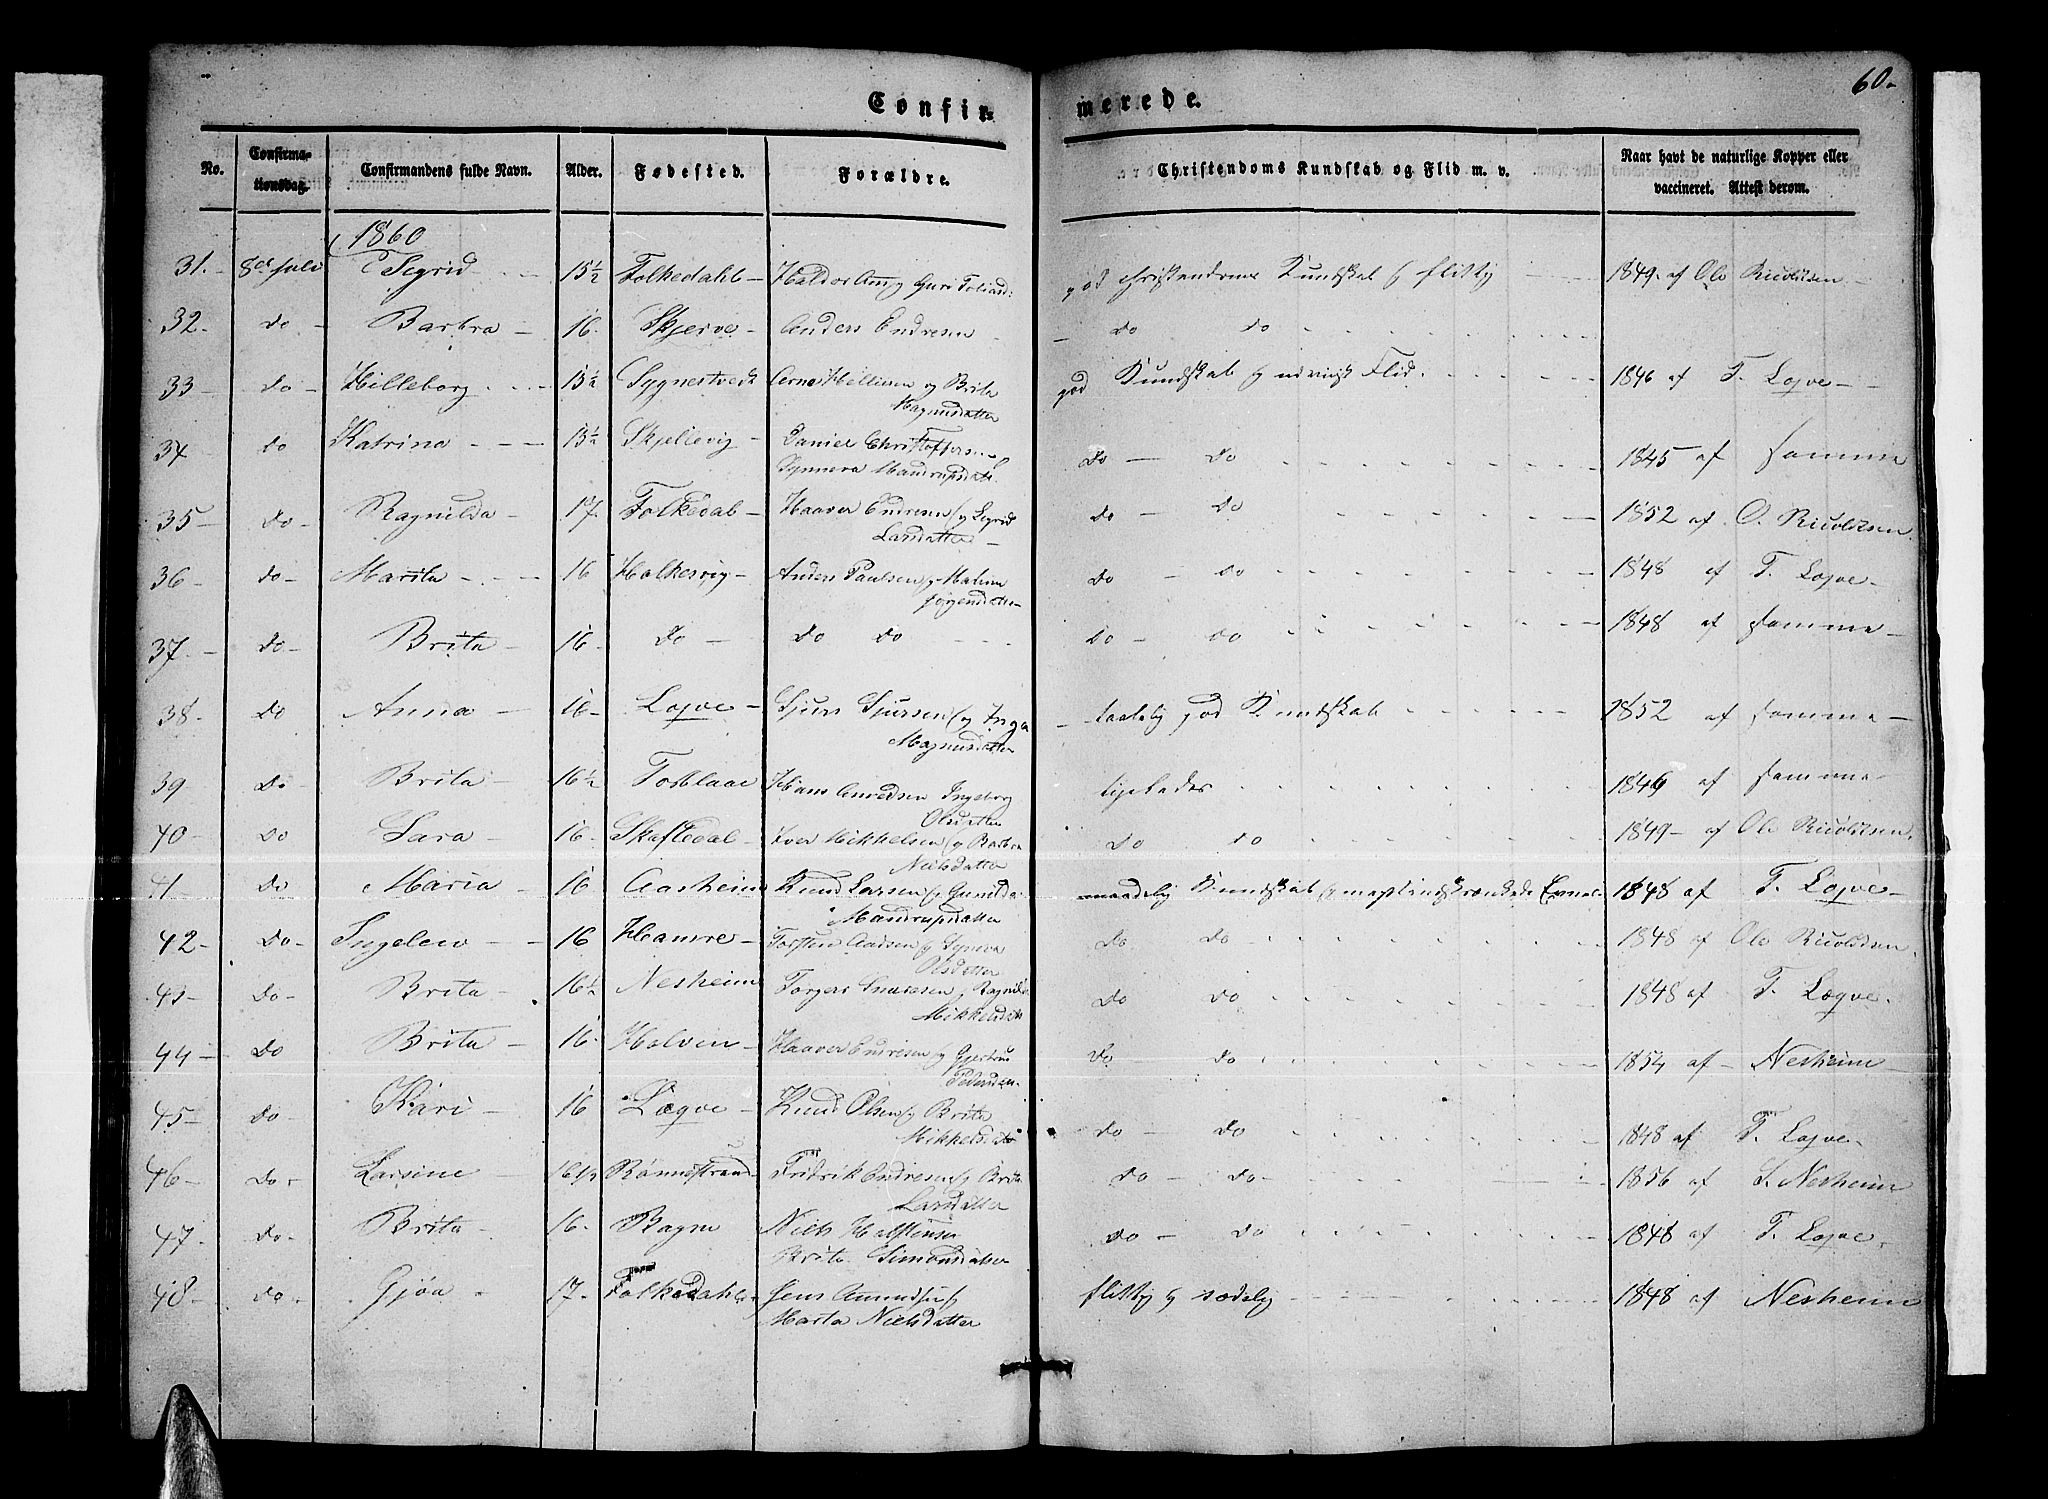 60.
Confir- merede.
No. Confirmationsdag. Confirmandens fulde Navn. Alder. Fødested. Forældre. Christendoms Kundskab og Flid m. v. Naar havt de naturlige Kopper eller vaccineret. Attest derom.
1860
31. 8de Juli Segrid 15½ Folkedahl Haldor god Christendoms Kundskab og flittig 1849 af Ole Ricoldsen
32. Do Barbra 16. Skjerve Anders Endresen Do Do
33 Do Hilleborg 15½ Sygnestvedt Hellissen og Brita god Kundskab og Flid. 1846 af T. Løqve
Magnusdatter
34 Do Katrina 15½ Skjellevig Daniel Christoffersen og Do Do 1845 af samme
Synneva Mandrupsdatter
35 Do Ragnilda 17. Folkedal Haaver Endresen og Segrid Do Do 1852 af O. Ricoldsen
Larsdatter
36 Do Marita 16 Halkesvig Anders Paulsen og Malene Do Do 1848 af T. Løqve
Jørgensdatter
37. Do Brita 16. Do Do Do Do Do 1848 af samme
38. Do Anna 16 Løqve Sjurs Sjursen og Inga taalelig god Kundskab 1852 af samme
Magnusdatter
39 Do Brita 16½ Hans Ingeborg ligeledes 1846 af samme
Olsdatter
40 Do Sara 16. Skaftedal Iver Mikkelsen og Barbra Do Do 1849 af Ole Ricoldsen.
Nielsdatter
41 Do Maria 16 Aasheim Knud Larsen og Gunilda maadelig Kundskab og indskrænkede Evner 1848 af T. Løqve
Mandrupsdatter
42 Do Ingelew 16 Hamre Torsten Aadsen og Synva Do Do 1848 af Ole Ricoldsen.
Olsdatter
43 Do Brita 16½ Nesheim Torgers og Ragnilda Do Do 1848 af T. Løqve.
Mikkelsdtr
44 Do Brita 16. Halven Haaver Endresen og Gjertrud Do Do 1854 af Nesheim
Pedersdtr.
45 Do Kari 16 Løqve Knud Olsen og Brita Do Do 1848 af T. Løqve
Mikkelsdtr
46 Do Larsine 16½ Rønnestrand Fridrik Endresen og Brita Do Do 1856 af S. Nesheim
Larsdatter
47. Do Brita 16. Bagne Niels Halstensen Do Do 1848 af T. Løqve
Brita Simonsdatter
48 Do Gjøa 17. Folkedahl Jens Amundsen og flittig og sædelig 1848 af Nesheim
Marta Nielsdatter